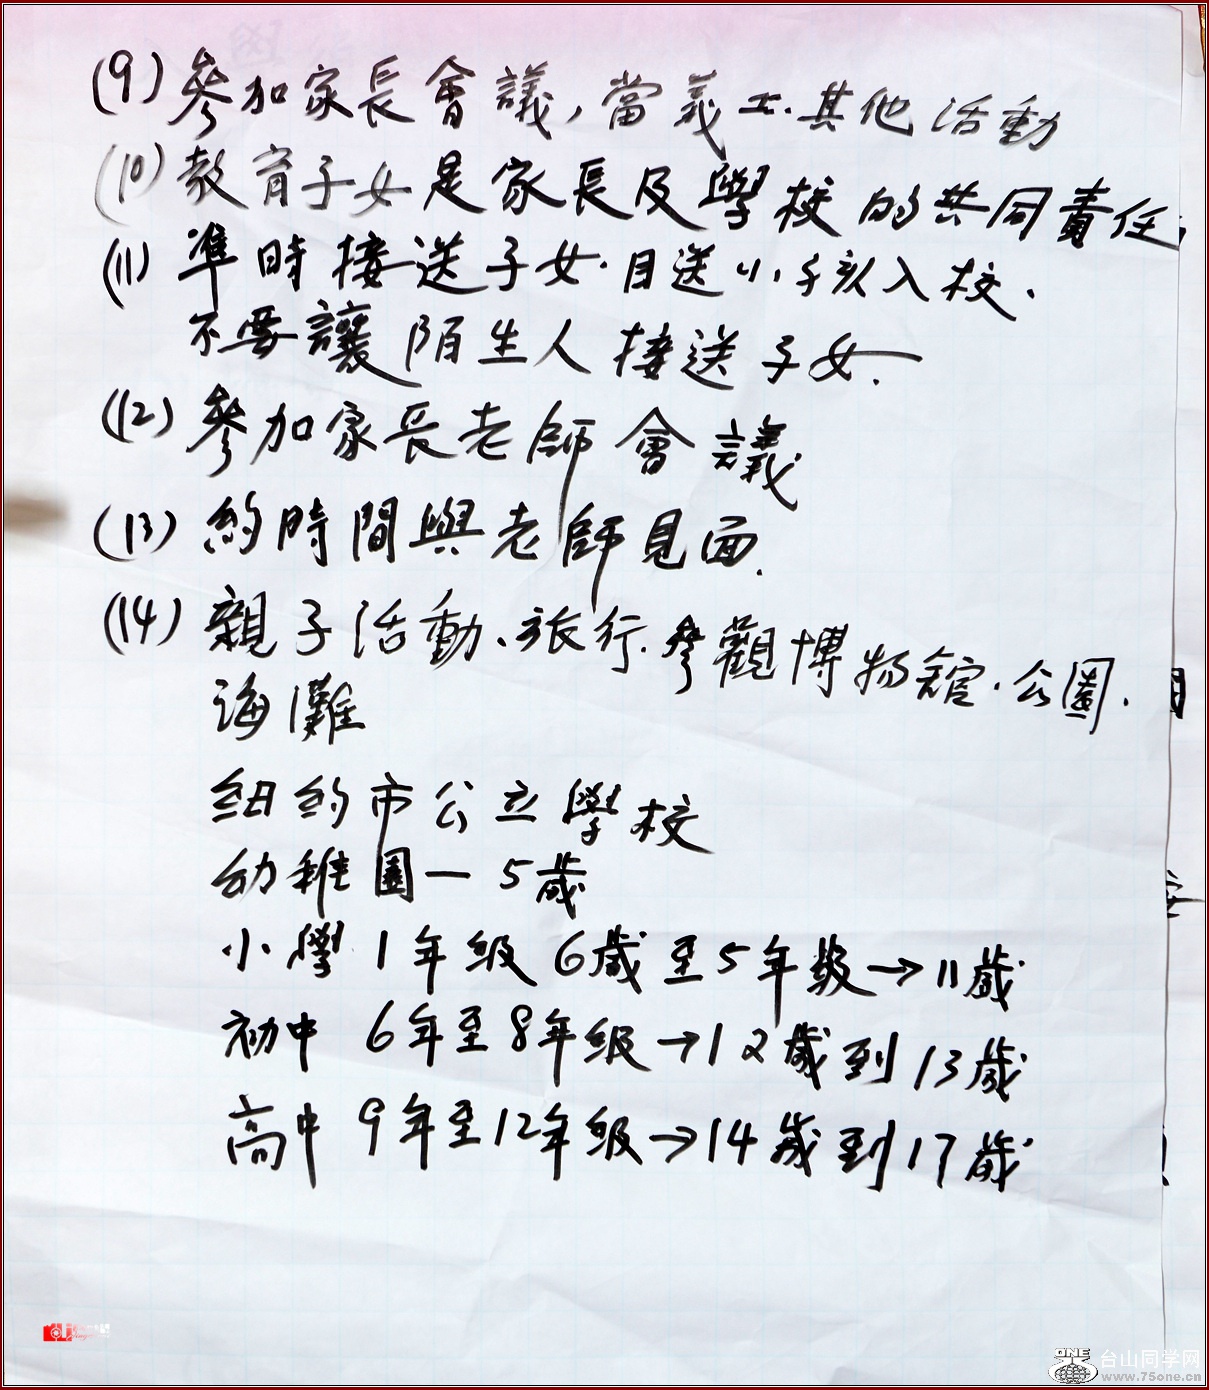 (9) 參加家長會議，當義工.其他活動
(10) 教育子女是家長及學校的共同責任,
(11) 準時接送子女.目送小孩入校.
不要讓陌生人接送子女.
(12) 參加家長老師會議
(13) 約時間與老師見面.
(14) 親子活動、旅行.參觀博物館.公園.
海灘
紐約市公立學校
幼稚園一 5歲
小學 1年級 6歲至5年級→11歲
初中 6年至8年級→12歲到13歲
高中 9年至12年級→14歲到17歲
ONE 台山同学网
www.75one.cn